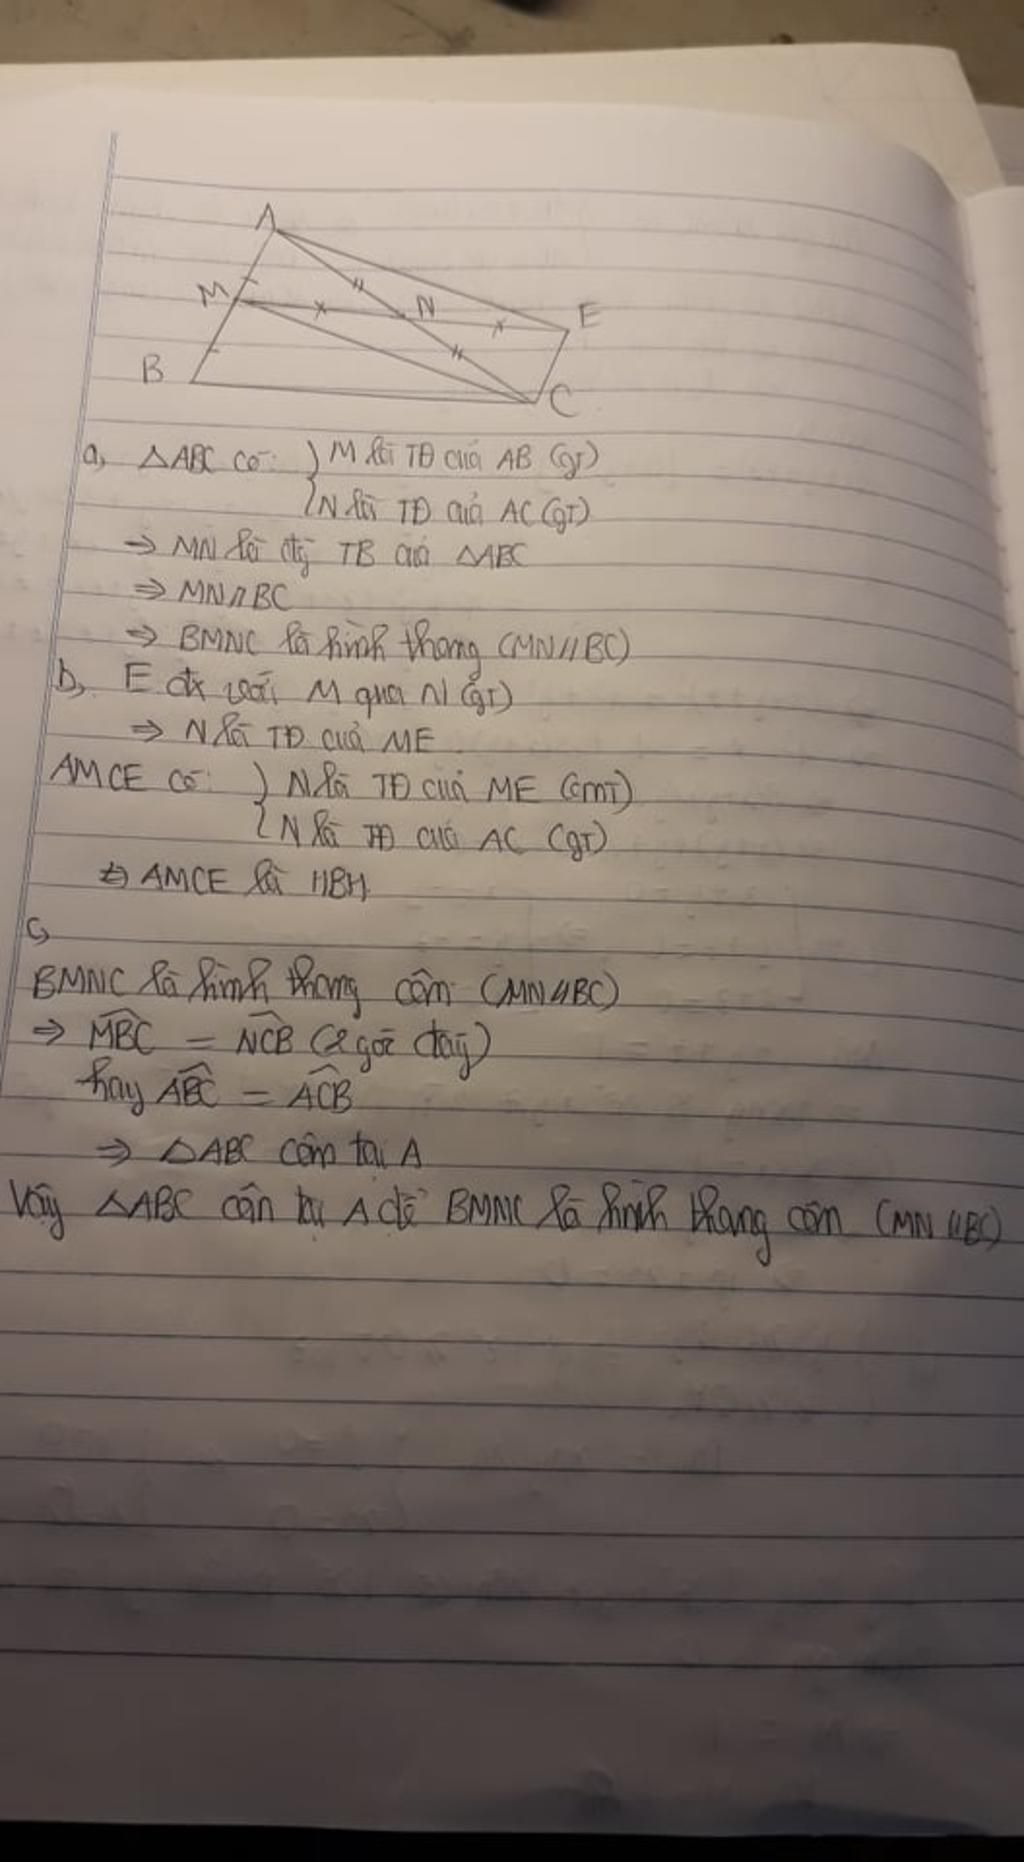 A
M
N
E
B
C
a, △ABC có: { M là TĐ của AB (gt)
N là TĐ của AC (gt)
⇒ MN là đg TB của △ABC
⇒ MN//BC
⇒ BMNC là hình thang (MN//BC)
b, E đx với M qua N (gt)
⇒ N là TĐ của ME
AMCE có: { N là TĐ của ME (cmt)
N là TĐ của AC (gt)
⇒ AMCE là HBH
c,
BMNC là hình thang cân (MN//BC)
⇒ \widehat{MBC} = \widehat{NCB} (2 góc đáy)
hay \widehat{ABC} = \widehat{ACB}
⇒ △ABC cân tại A
Vậy △ABC cân tại A để BMNC là hình thang cân (MN//BC)